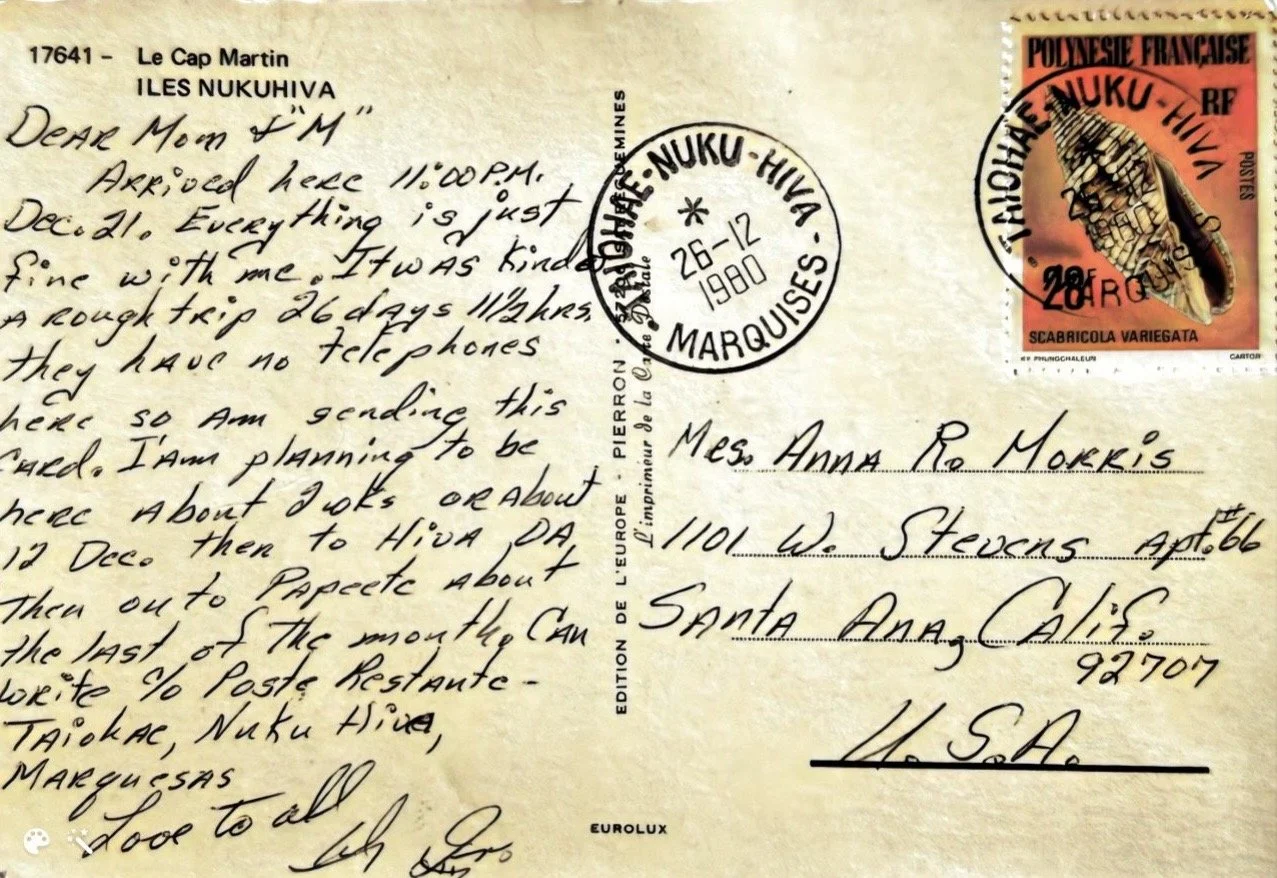 17641 - Le Cap Martin
ILES NUKUHIVA
DEAR Mom & "M"
ARRived here 11:00 P.M.
Dec. 21. Everything is just
fine with me. It was kinda
A rough trip 26 days 11 1/2 hrs.
they have no telephones
here so Am sending this
CARD. I'Am planning to be
here About 2 wks or About
12 Dec. then to HIVA OA
Then on to Papeete About
the last of the month. Can
write c/o Poste Restante -
TAiohae, Nuku Hiva,
MARquesas
Love to all
EDITION DE L'EUROPE - PIERRON -
L'imprimeur de la Carte Postale
EUROLUX
TAIOHAE-NUKU-HIVA
*
26-12
1980
MARQUISES
POLYNESIE FRANÇAISE
RF
POSTES
28F
SCABRICOLA VARIEGATA
CARTOR
TAIOHAE-NUKU-HIVA
26-12
1980
MARQUISES
Mrs. Anna R. Morris
1101 W. Stevens Apt. #66
Santa Ana, Calif.
92707
U.S.A.